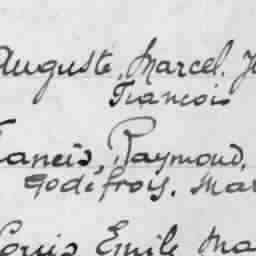 Auguste, Marcel.
François
Francis, Raymond,
Godefrois. Mar
Louis Emile Ma